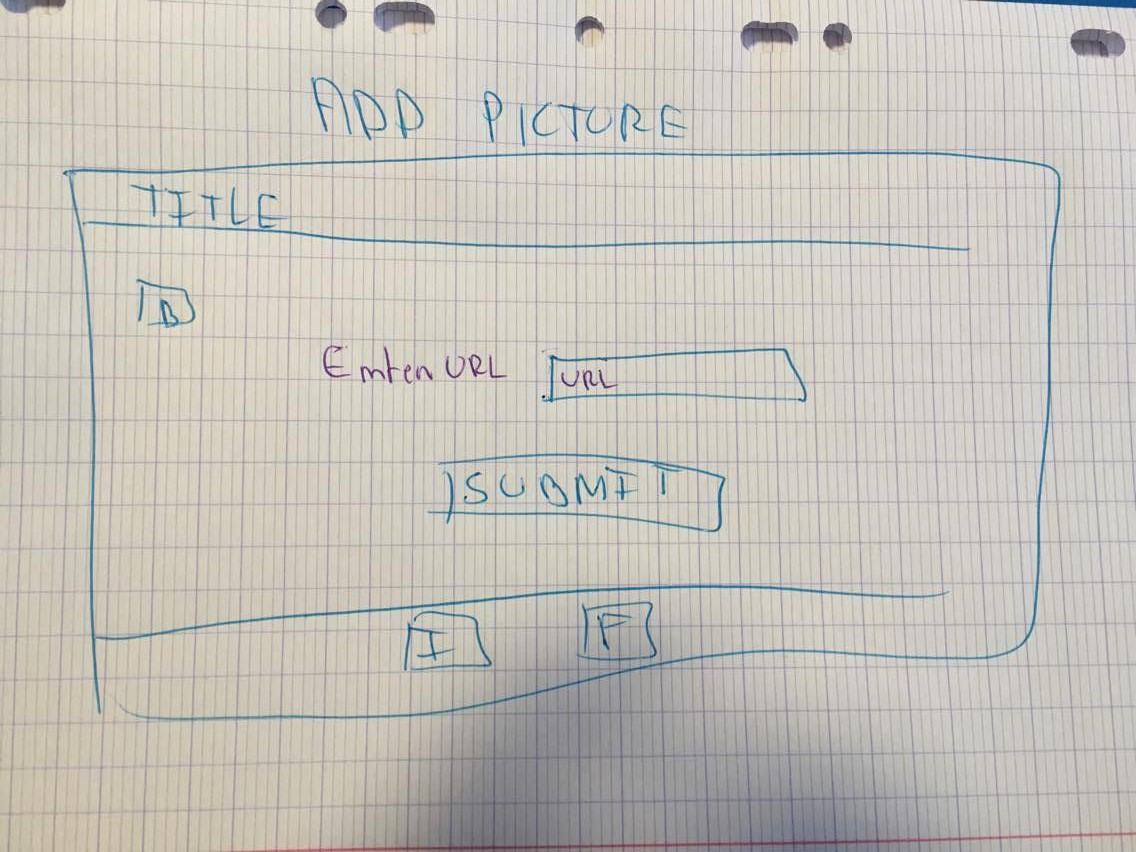 ADD PICTURE
TITLE
B
Enter URL URL
SUBMIT
I F